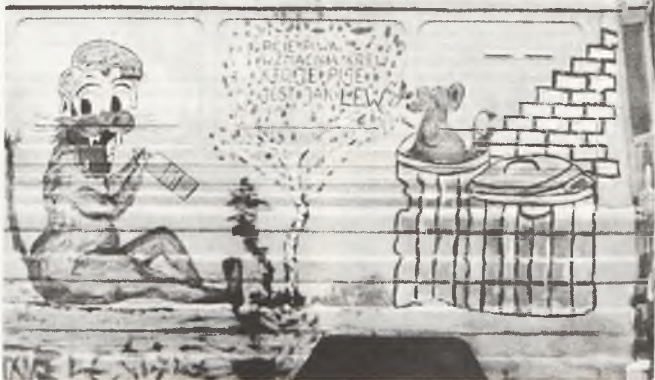 PICIE PIWA
WZMACNIA KREW
KTO JE PIJE
JEST JAK LEW